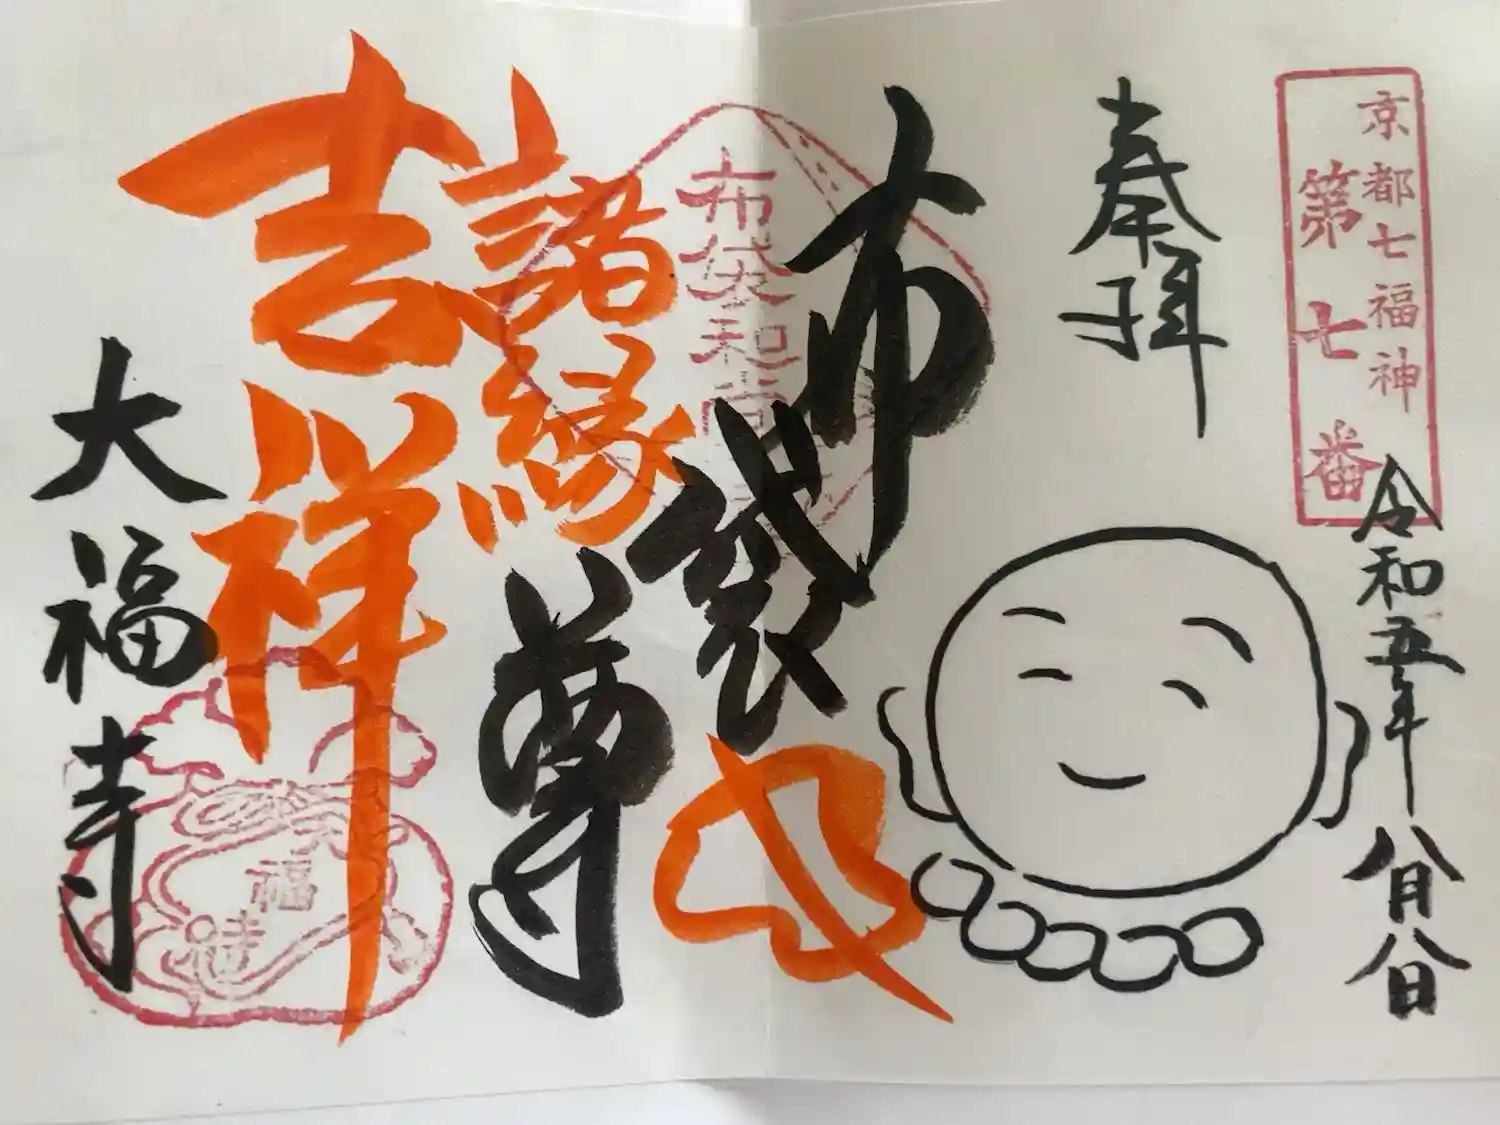 京都七福神
第七番
奉拝
令和五年八月八日
布袋尊
諸縁
吉祥
大福寺
布袋和尚
福